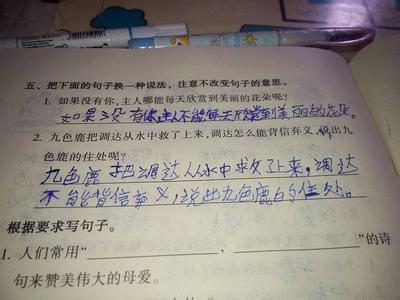 五、把下面的句子换一种说法，注意不改变句子的意思。
1. 如果没有你，主人哪能每天欣赏到美丽的花朵呢？
如果没有你，主人不能每天欣赏到美丽的花朵。
2. 九色鹿把调达从水中救了上来，调达怎么能背信弃义，说出九
色鹿的住处呢？
九色鹿把调达从水中救了上来，调达
不能背信弃义，说出九色鹿的住处。
根据要求写句子。
1. 人们常用“ ， ”的诗
句来赞美伟大的母爱。